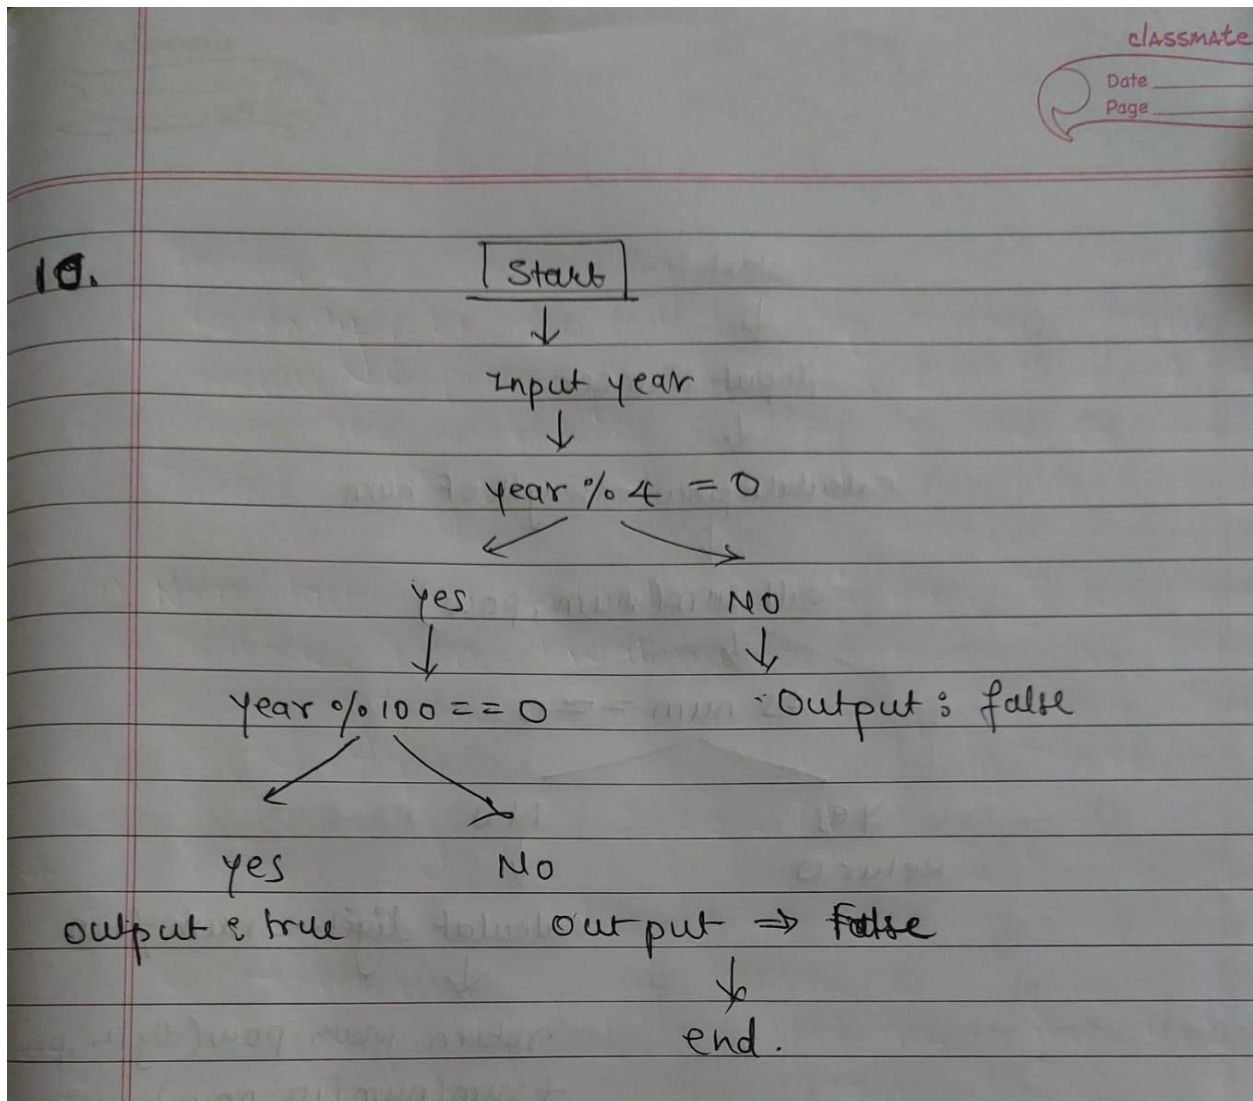 classmate
Date
Page
10.
Start
Input year
year % 4 = 0
yes NO
year % 100 == 0 Output : false
yes No
output : true output ⇒ False
end.